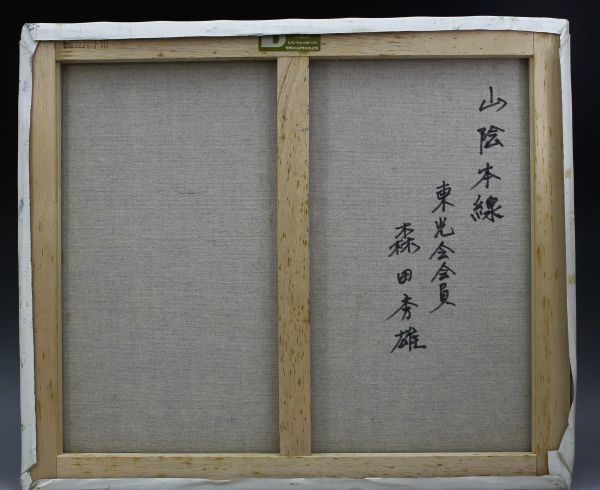 山陰本線
東光会会員
森田秀雄